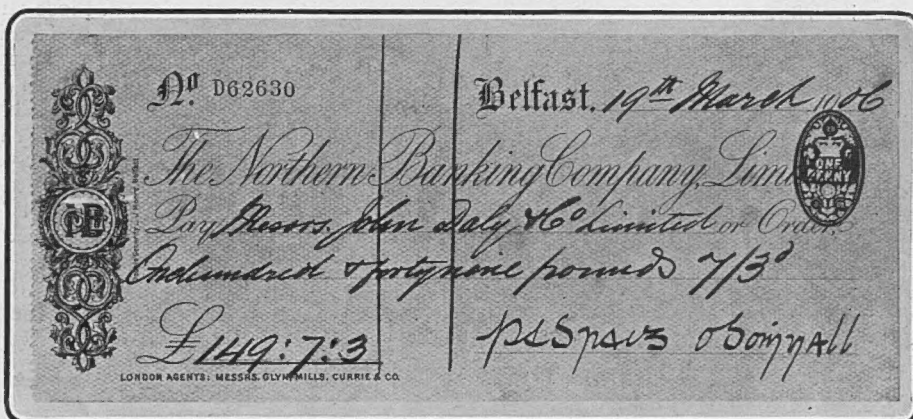 No D62630
Belfast, 19th March 1906
The Northern Banking Company, Limi
ONE PENNY
Pay Messrs. John Daly & Co Limited or Order,
One hundred & forty nine pounds 7/3d
£149:7:3
LONDON AGENTS: MESSRS. GLYN, MILLS, CURRIE & CO.